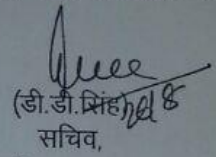 (डी.डी.सिंह)
सचिव,